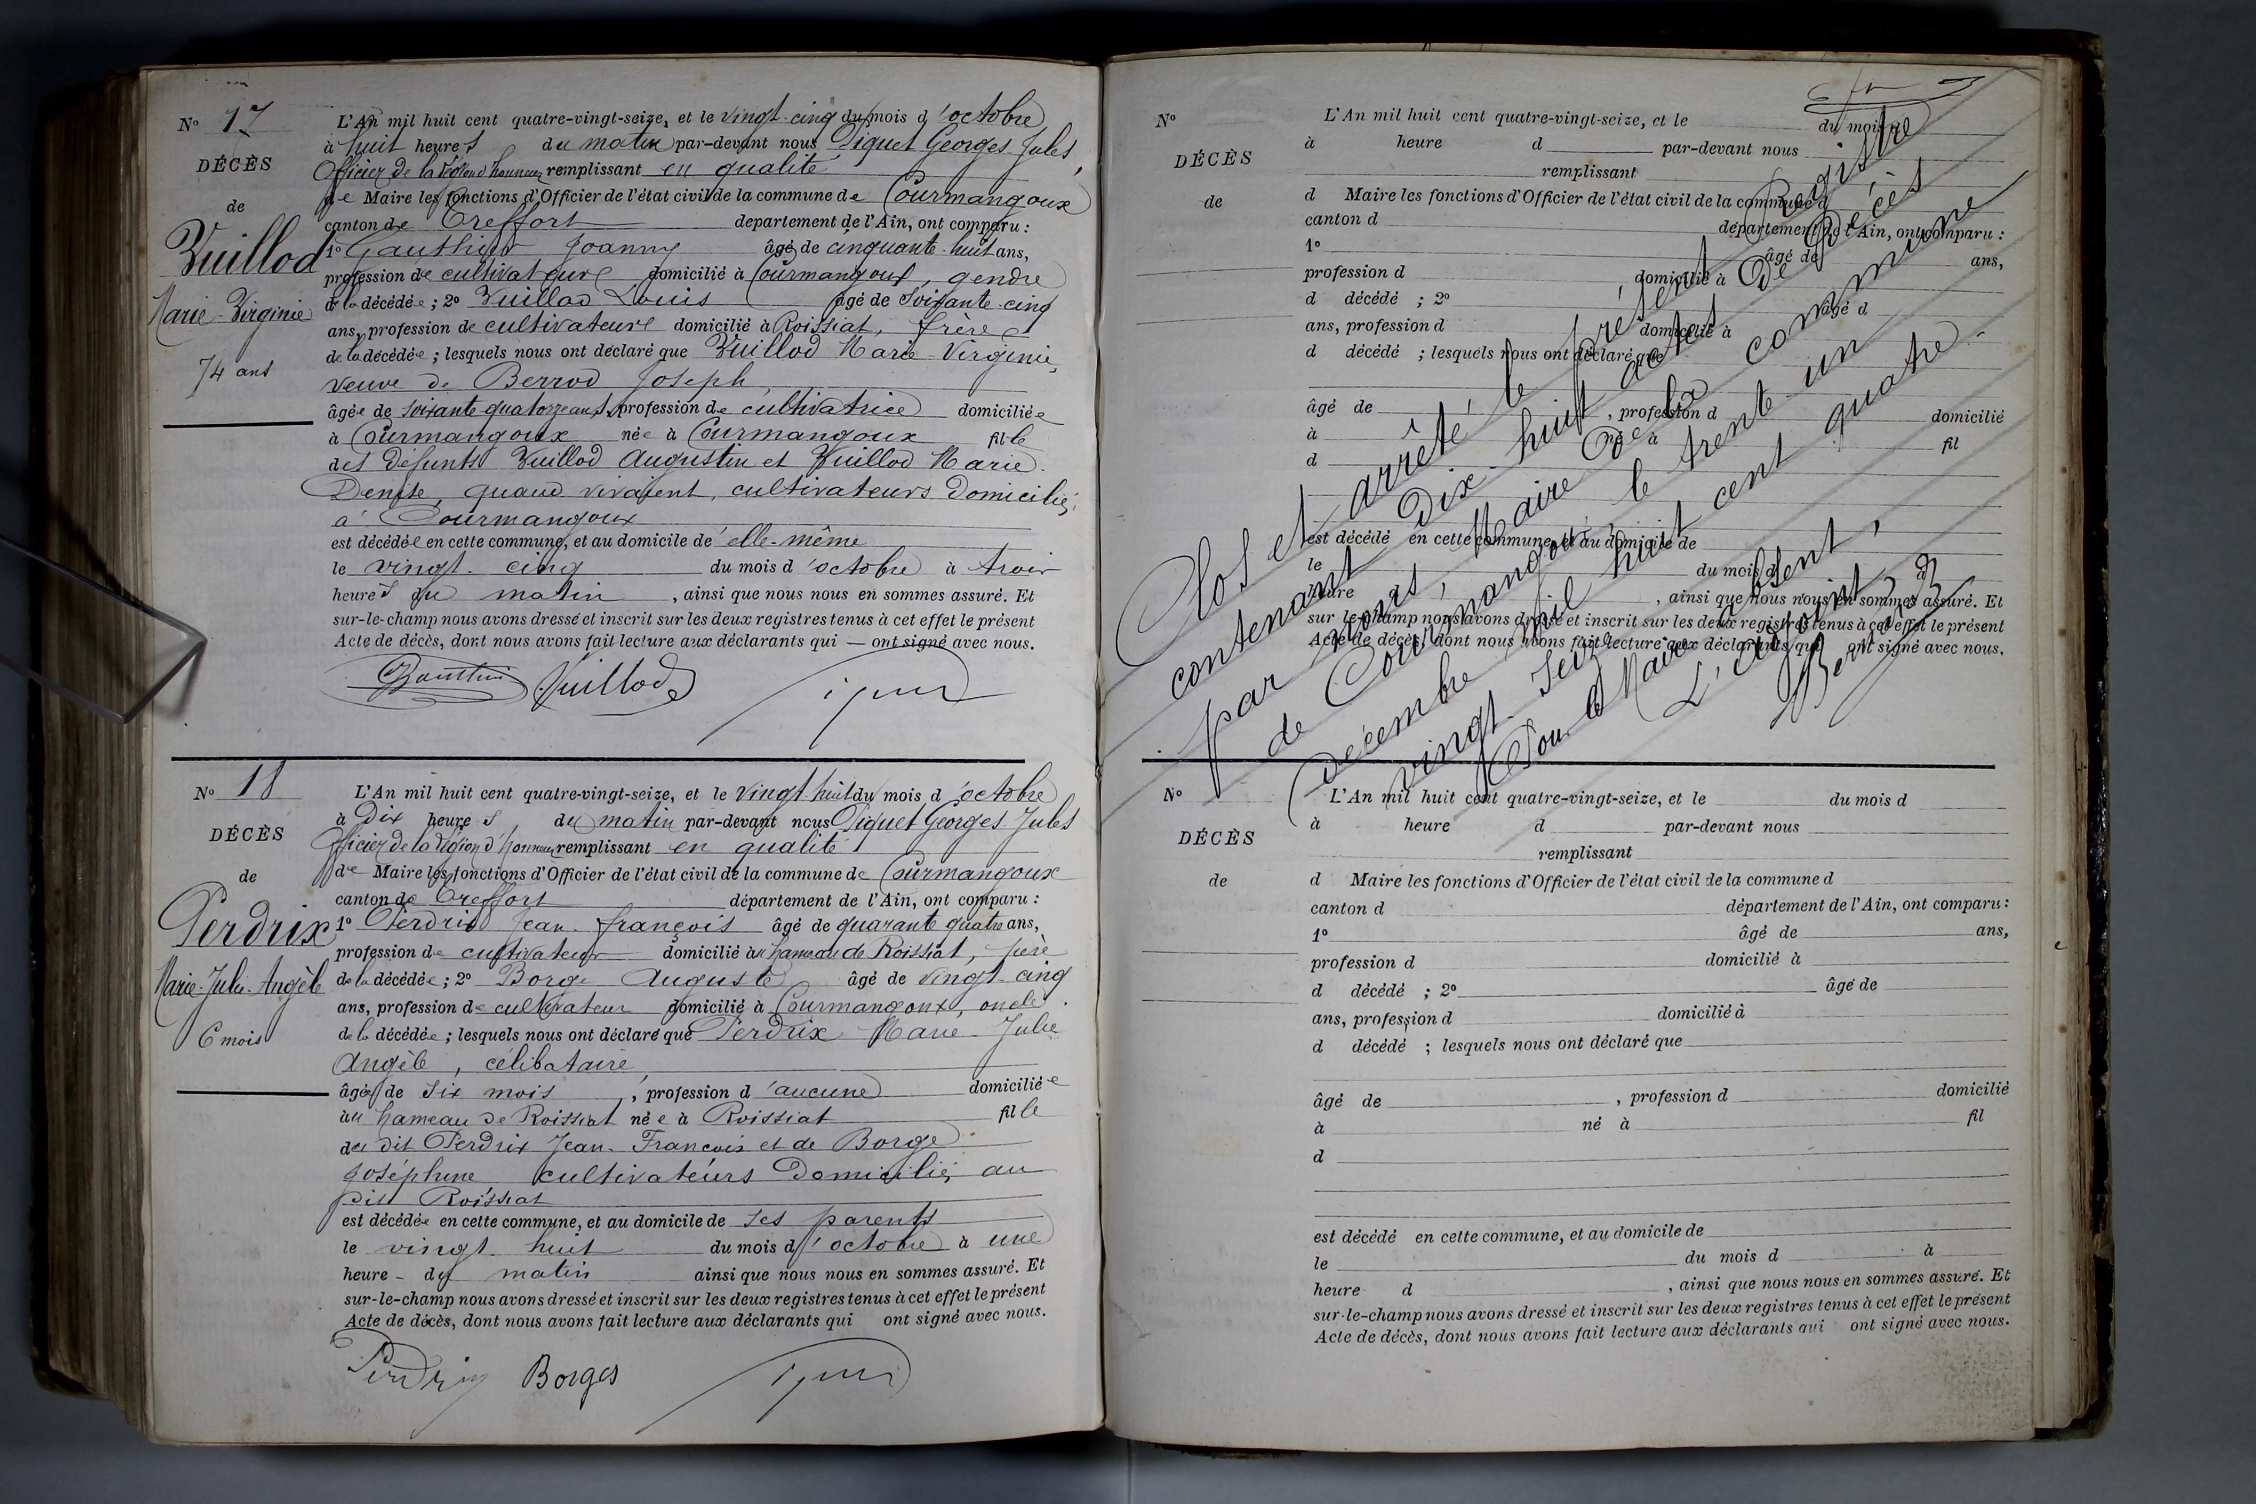 N° 17
DÉCÈS
de
Vuillod
Marie-Virginie
74 ans
L'An mil huit cent quatre-vingt-seize, et le vingt-cinq du mois d'octobre
à huit heures du matin par-devant nous Piquet Georges Jules,
Officier de la Légion d'honneur remplissant en qualité
de Maire les fonctions d'Officier de l'état civil de la commune de Courmangoux
canton de Treffort département de l'Ain, ont comparu :
1° Gauthier Joanny âgé de cinquante-huit ans,
profession de cultivateur domicilié à Courmangoux, gendre
de la décédée ; 2° Vuillod Louis âgé de soixante-cinq
ans, profession de cultivateur domicilié à Roissiat, frère
de la décédée ; lesquels nous ont déclaré que Vuillod Marie-Virginie,
veuve de Berrod Joseph,
âgée de soixante quatorze ans, profession de cultivatrice domiciliée
à Courmangoux née à Courmangoux fille
des défunts Vuillod Augustin et Vuillod Marie
Denise, quand vivaient, cultivateurs domiciliés
à Courmangoux
est décédée en cette commune, et au domicile d'elle-même
le vingt-cinq du mois d'octobre à trois
heures du matin, ainsi que nous nous en sommes assuré. Et
sur-le-champ nous avons dressé et inscrit sur les deux registres tenus à cet effet le présent
Acte de décès, dont nous avons fait lecture aux déclarants qui — ont signé avec nous.
Vuillod
N° 18
DÉCÈS
de
Perdrix
Marie-Julie-Angèle
6 mois
L'An mil huit cent quatre-vingt-seize, et le vingt-huit du mois d'octobre
à dix heures du matin par-devant nous Piquet Georges Jules
Officier de la Légion d'honneur remplissant en qualité
de Maire les fonctions d'Officier de l'état civil de la commune de Courmangoux
canton de Treffort département de l'Ain, ont comparu :
1° Perdrix Jean-françois âgé de quarante quatre ans,
profession de cultivateur domicilié au hameau de Roissiat, père
de la décédée ; 2° Borge Auguste âgé de vingt-cinq
ans, profession de cultivateur domicilié à Courmangoux, oncle
de la décédée ; lesquels nous ont déclaré que Perdrix Marie Julie
Angèle, célibataire,
âgée de six mois, profession d'aucune domiciliée
au hameau de Roissiat née à Roissiat fille
du dit Perdrix Jean-François et de Borge
Joséphine cultivateurs domiciliés au
dit Roissiat
est décédée en cette commune, et au domicile de ses parents
le vingt-huit du mois d'octobre à une
heure - du matin ainsi que nous nous en sommes assuré. Et
sur-le-champ nous avons dressé et inscrit sur les deux registres tenus à cet effet le présent
Acte de décès, dont nous avons fait lecture aux déclarants qui ont signé avec nous.
Perdrix Borges
N°
DÉCÈS
de
L'An mil huit cent quatre-vingt-seize, et le du mois d
à heure d par-devant nous
remplissant
d Maire les fonctions d'Officier de l'état civil de la commune d
canton d département de l'Ain, ont comparu :
1° âgé de ans,
profession d , domicilié à
d décédé ; 2° âgé d
ans, profession d domicilié à
d décédé ; lesquels nous ont déclaré que
âgé de , profession d domicilié
à né à fil
d
est décédé en cette commune, et au domicile de
le du mois d à
heure , ainsi que nous nous en sommes assuré. Et
sur-le-champ nous avons dressé et inscrit sur les deux registres tenus à cet effet le présent
Acte de décès, dont nous avons fait lecture aux déclarants qui ont signé avec nous.
Clos et arrêté, le présent Registre
contenant Dix-huit actes de Décès
par nous, Maire de la commune
de Courmangoux, le trente un
Décembre mil huit cent quatre-
vingt-seize
Pour le Maire absent,
L'adjoint,
N°
DÉCÈS
de
L'An mil huit cent quatre-vingt-seize, et le du mois d
à heure d par-devant nous
remplissant
d Maire les fonctions d'Officier de l'état civil de la commune d
canton d département de l'Ain, ont comparu :
1° âgé de ans,
profession d domicilié à
d décédé ; 2° âgé de
ans, profession d domicilié à
d décédé ; lesquels nous ont déclaré que
âgé de , profession d domicilié
à né à fil
d
est décédé en cette commune, et au domicile de
le du mois d à
heure d , ainsi que nous nous en sommes assuré. Et
sur-le-champ nous avons dressé et inscrit sur les deux registres tenus à cet effet le présent
Acte de décès, dont nous avons fait lecture aux déclarants qui ont signé avec nous.